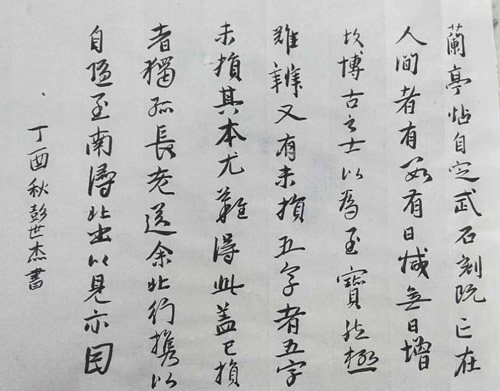 蘭亭帖自定武石刻既亡在
人間者有數有日減無日增
故博古之士以為至寶然極
難辨又有未損五字者五字
未損其本尤難得此蓋已損
者獨孤長老送余北行攜以
自隨至南潯北出以見示因
丁酉秋彭世杰書